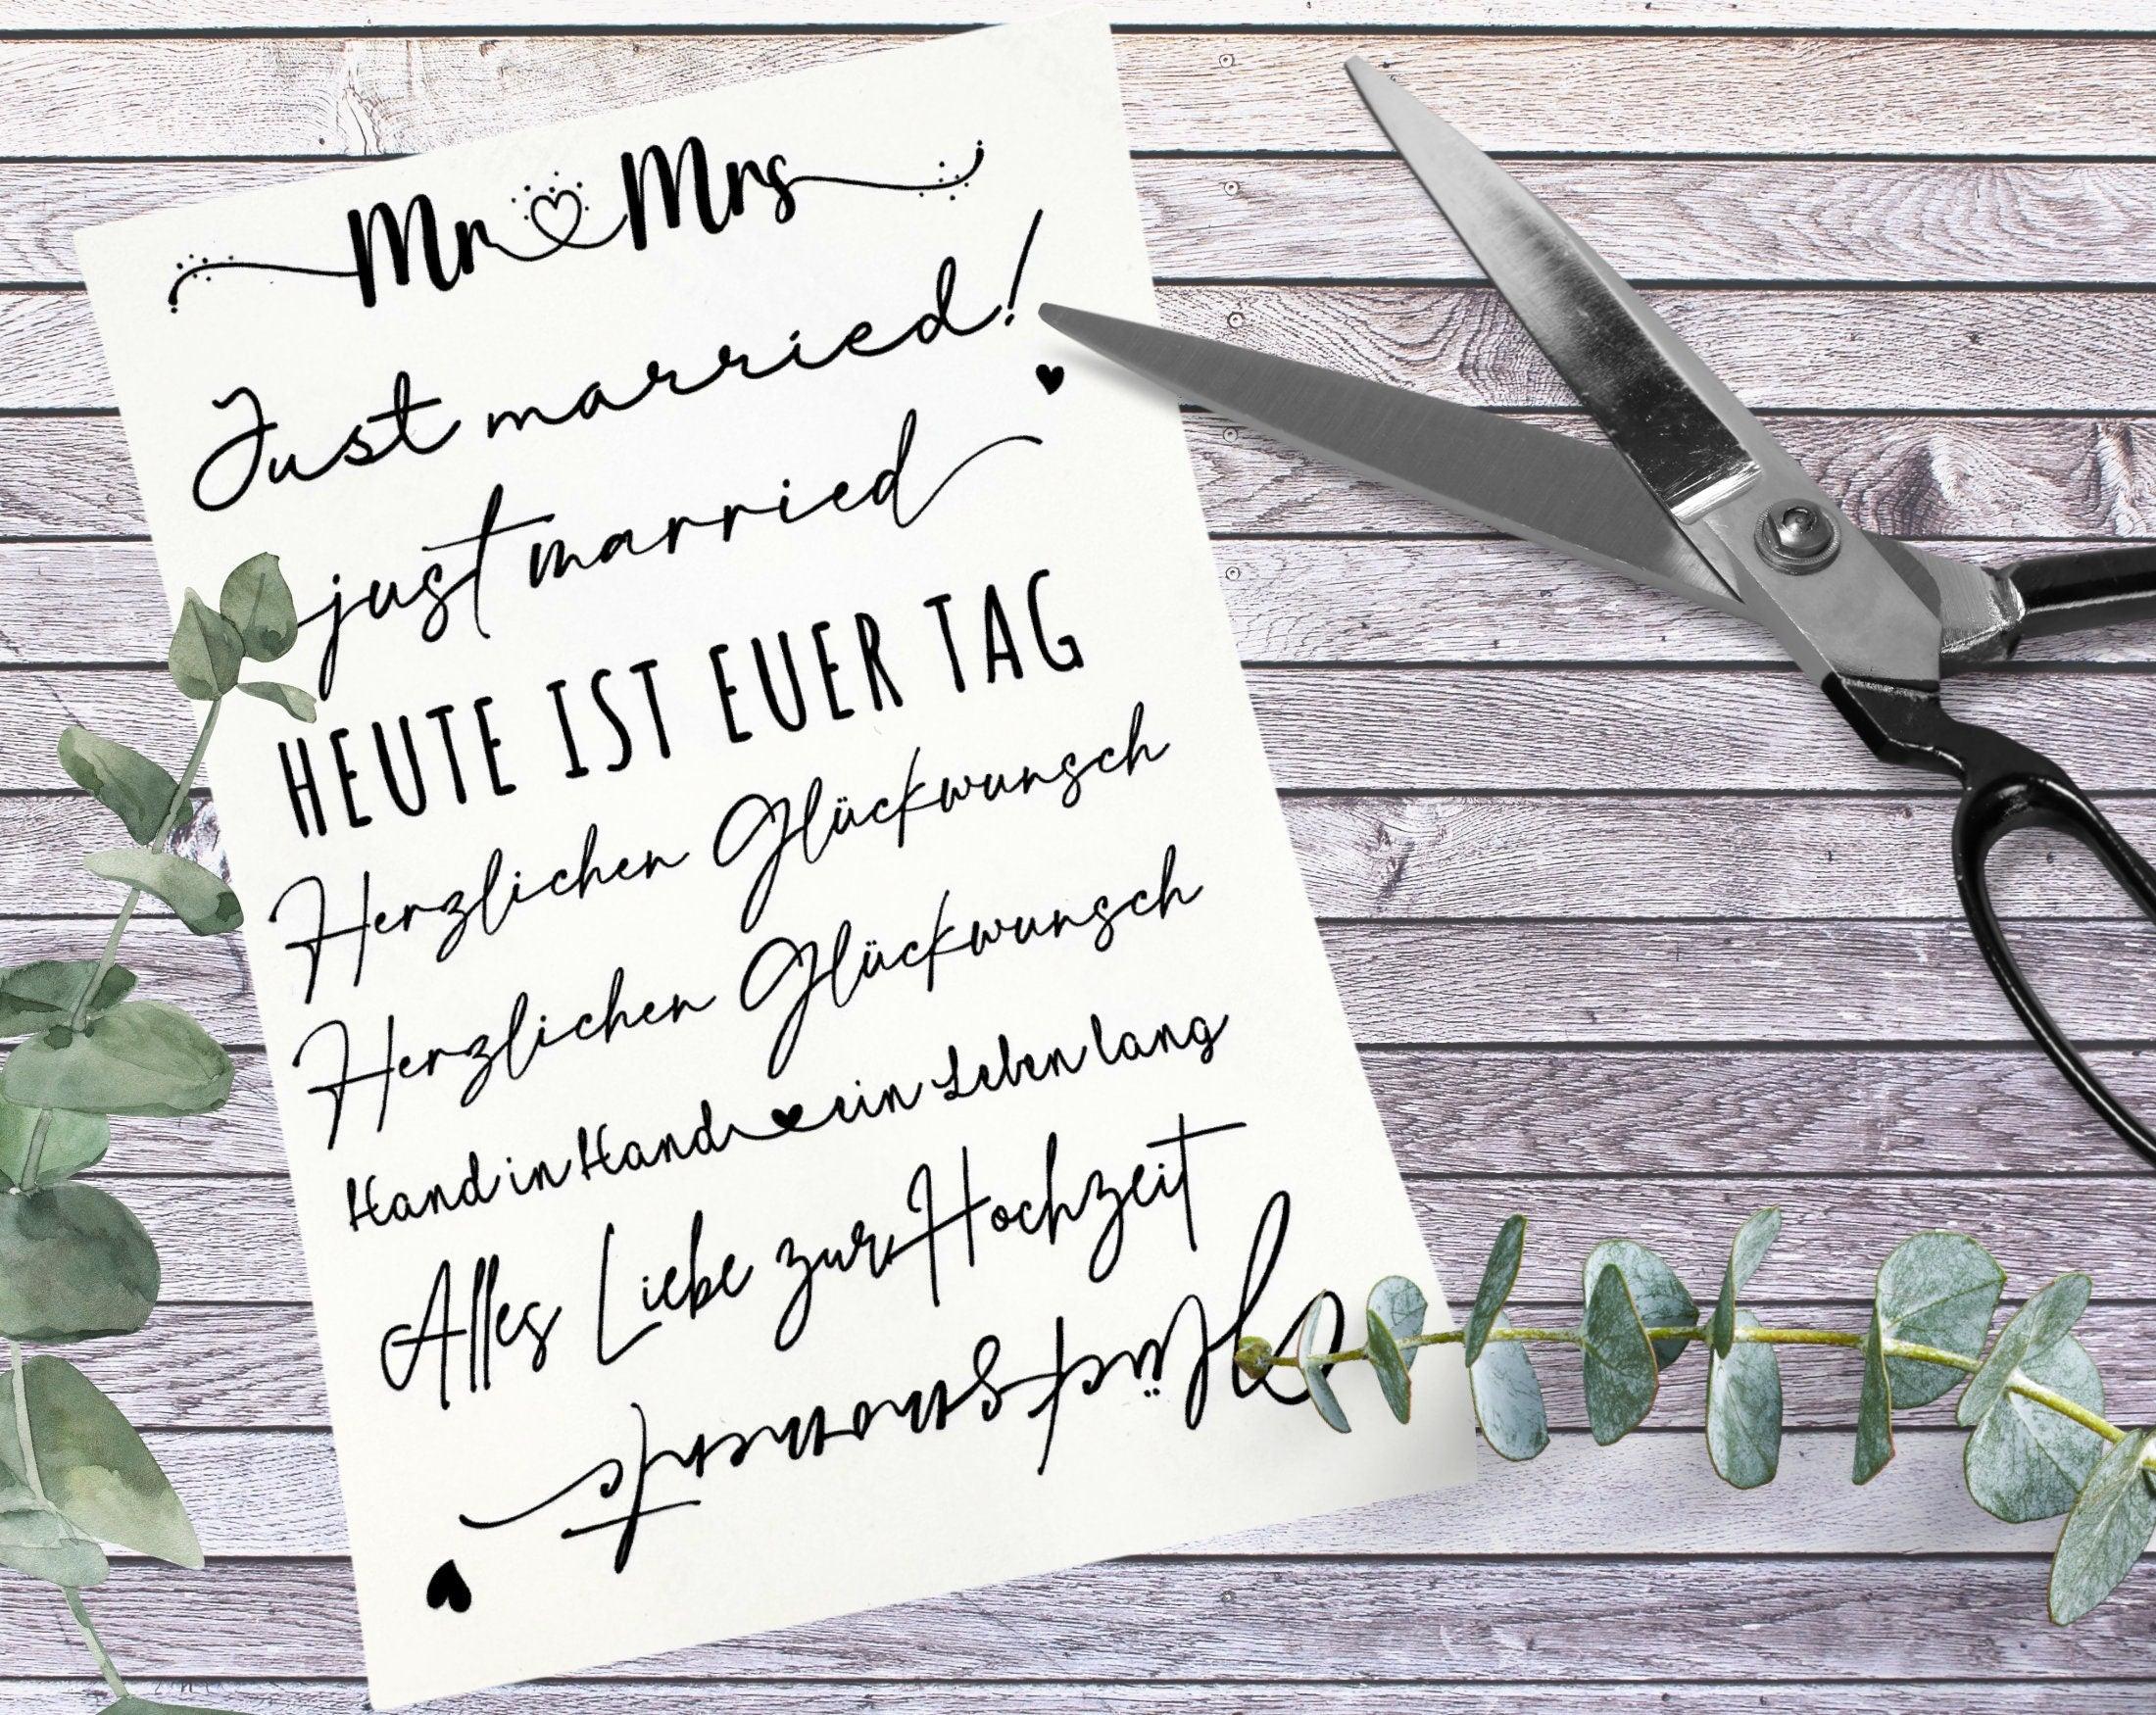 Mr Mrs
Just married!
just married
HEUTE IST EUER TAG
Herzlichen Glückwunsch
Herzlichen Glückwunsch
Hand in Hand ein Leben lang
Alles Liebe zur Hochzeit
Glücksmomente